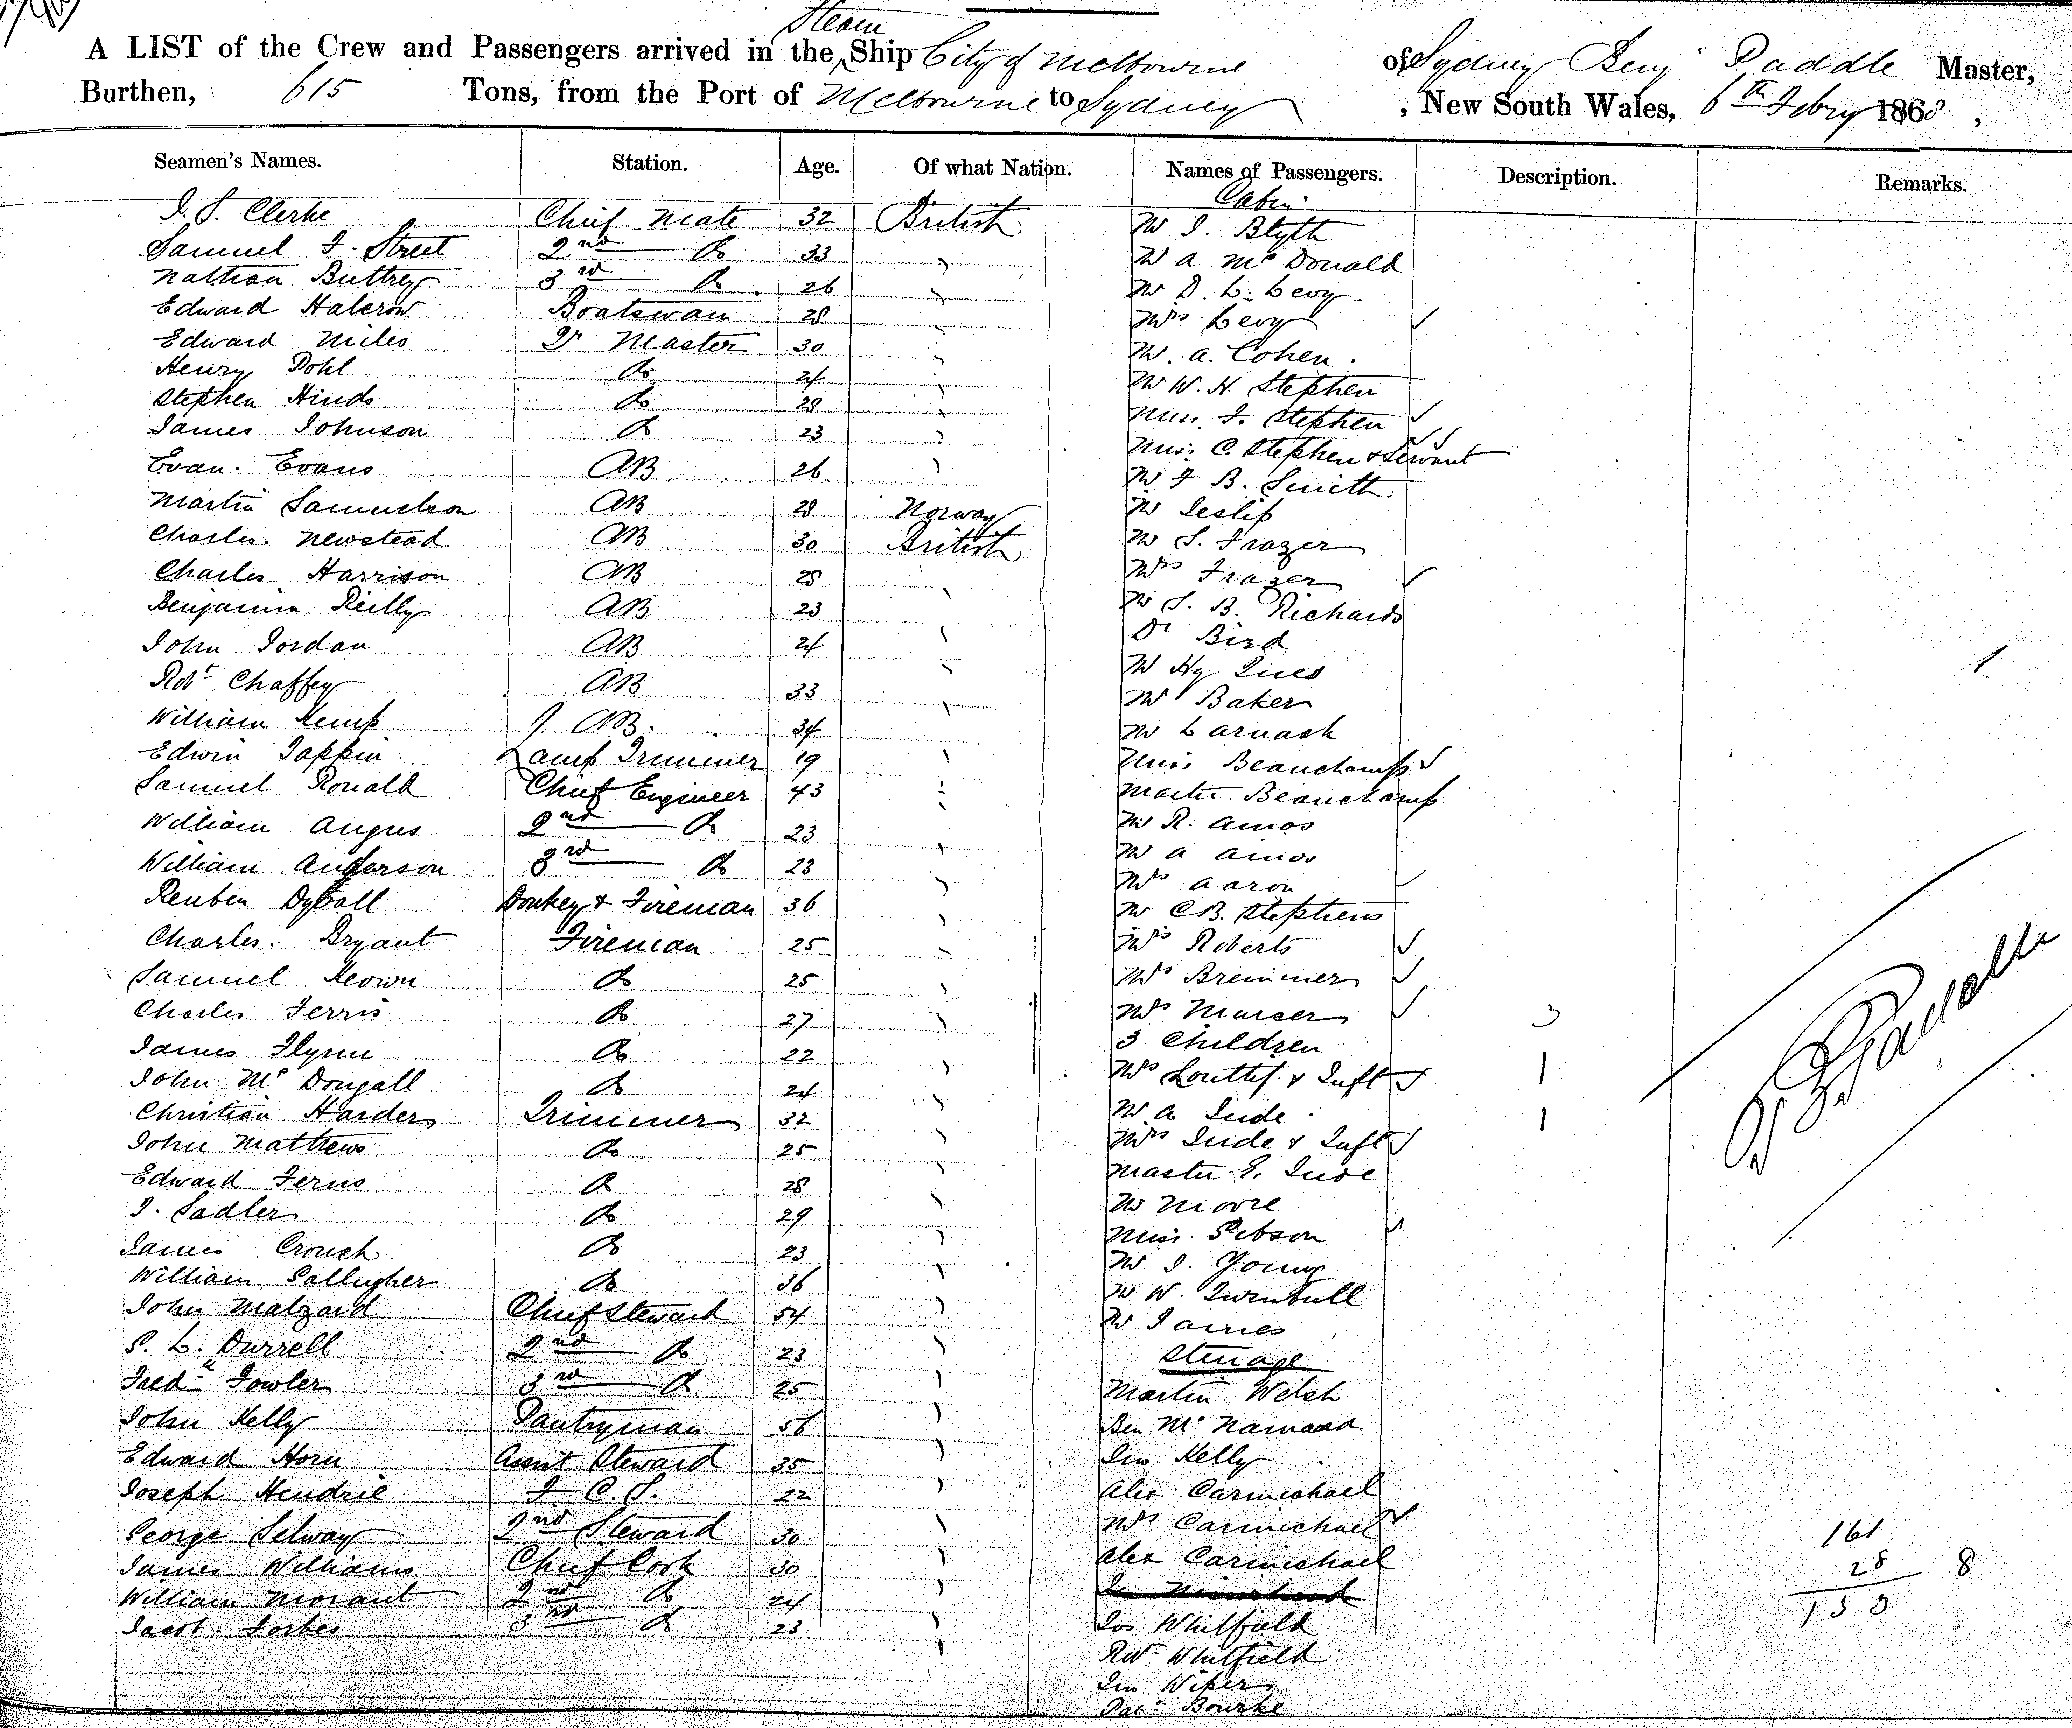 A LIST of the Crew and Passengers arrived in the Steam Ship City of Melbourne of Sydney Benj Paddle Master,
Burthen, 615 Tons, from the Port of Melbourne to Sydney, New South Wales, 6th Febry 186
Seamen's Names. Station. Age. Of what Nation. Names of Passengers. Description. Remarks.
Cabin
J. S. Clerke Chief Mate 32 British Mr J. Blyth
Samuel J. Street 2nd Do 33 " Mr A McDonald
Nathan Buttrey 3rd Do 26 " Mr D. L. Levy
Edward Halcrow Boatswain 28 " Mrs Levy
Edward Miles Qr Master 30 " Mr. A. Cohen.
Henry Pohl Do 24 " Mr W. H. Stephen
Stephen Hinds Do 28 " Miss J. Stephen
James Johnson Do 23 " Miss C. Stephen & Servant
Evan Evans AB 26 " Mr F B. Smith
Martin Samuelson AB 28 Norway Mr Leslip
Charles Newstead AB 30 British Mr S. Frazer
Charles Harrison AB 28 " Mrs Frazer
Benjamin Reilly AB 23 " Mr S. B. Richards
John Jordan AB 24 " Dr Bird
Robt Chaffey AB 33 " Mr Hy
William Kemp AB. 34 " Mr Baker
Edwin Tappin Lamp Trimmer 19 " Mr Larnach
Samuel Ronald Chief Engineer 43 " Miss Beauchamp
William Angus 2nd Do 23 " Master Beauchamp
William Anderson 3rd Do 23 " Mr R. Amos
Reuben Dyball Donkey & Fireman 36 " Mr A Amos
Charles Bryant Fireman 25 " Mrs Aaron
Samuel Keown Do 25 " Mr C B. Stephens
Charles Ferris Do 27 " Mrs Roberts
James Flynn Do 22 " Mrs Bremmer
John McDougall Do 24 " Mrs Marser
Christian Harder Trimmer 32 " 3 Children 3
John Mathews Do 25 " Mrs Louttif & Inft 1
Edward Ferris Do 28 " Mr A Jude
J. Sadler Do 29 " Mrs Jude & Inft 1
James Crouch Do 23 " Master G. Jude
William Gallugher Do 36 " Mr Moore
John Malzard Chief Steward 54 " Miss Gibson
S. L. Durrell 2nd Do 23 " Mr J. Young
Fredk Fowler 3rd Do 25 " Mr W. Turnbull
John Kelly Pantryman 56 " Mr James
Edward Horn Assist Steward 35 " Steerage
Joseph Hendrie F C. S. 22 " Martin Welsh
George Selway 2nd Steward 30 " Ben McNamara
James Williams Chief Cook 30 " Jas Kelly
William Morant 2nd Do 24 " Alex Carmichael
Jacob Forbes 3rd Do 23 " Mrs Carmichael
Alex Carmichael
Jos Whitfield
Robt Whitfield
Jas Wiper
Bourke
B. Paddle
161
28 8
133